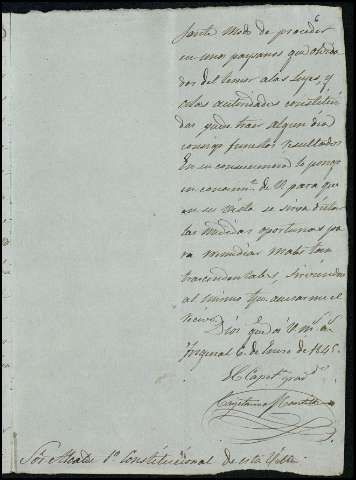 sante modo de proceder
en unos paysanos que olvida
dos del temor a las Leyes, y
a las autoridades constitui
das puede traer algun dia
consigo funestos resultados
En su consecuencia lo pongo
en conocim.to de V. para que
en su vista se sirva dictar
las medidas oportunas pa
ra remediar males tan
trascendentales, sirviendose
al mismo tpo. avisarme el
recivo.
Dios gue. á V. m.s a.s
6 de Enero de 1845.
El Capn. grad.do
Cayetano
Sor. Alcalde 1o. Constitucional de esta Villa.